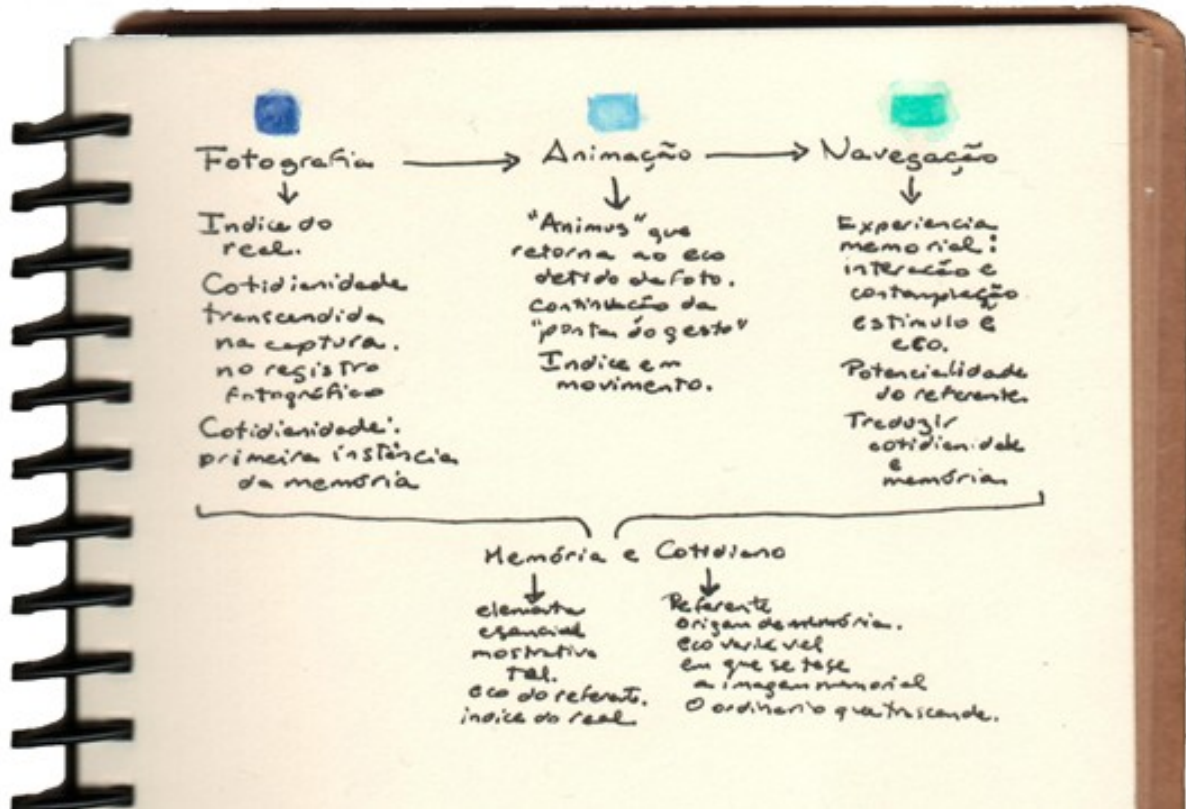 Fotografia → Animação → Navegação
Indice do
real.
Cotidianidade
transcendida
na captura.
no registro
fotográfico
Cotidianidade:
primeira instância
da memória
"Animus" que
retorna ao eco
detido da foto.
Continuação da
"ponta do gesto"
Indice em
movimento.
Experiencia
memorial:
interação e
contemplação
estimulo e
eco.
Potencialidade
do referente
Traduzir
cotidianidade
e
memória
Memória e Cotidiano
elemento
esencial
mostrativo
eco do referente.
indice do real
Referente
origem da memória.
eco variável
em que se tese
a imagem memorial
O ordinario que trascende.